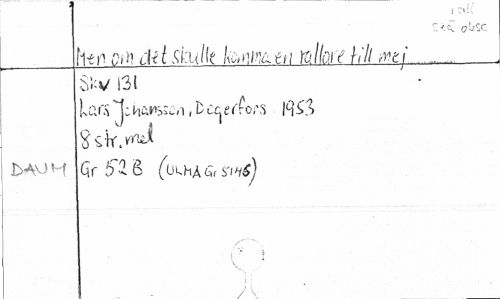 rall
Men om det skulle komma en rallare till mej
Skv 131
Lars Johansson, Degerfors 1953
8 str. mel
DAUM Gr 52 B (ULMA Gr 5146)